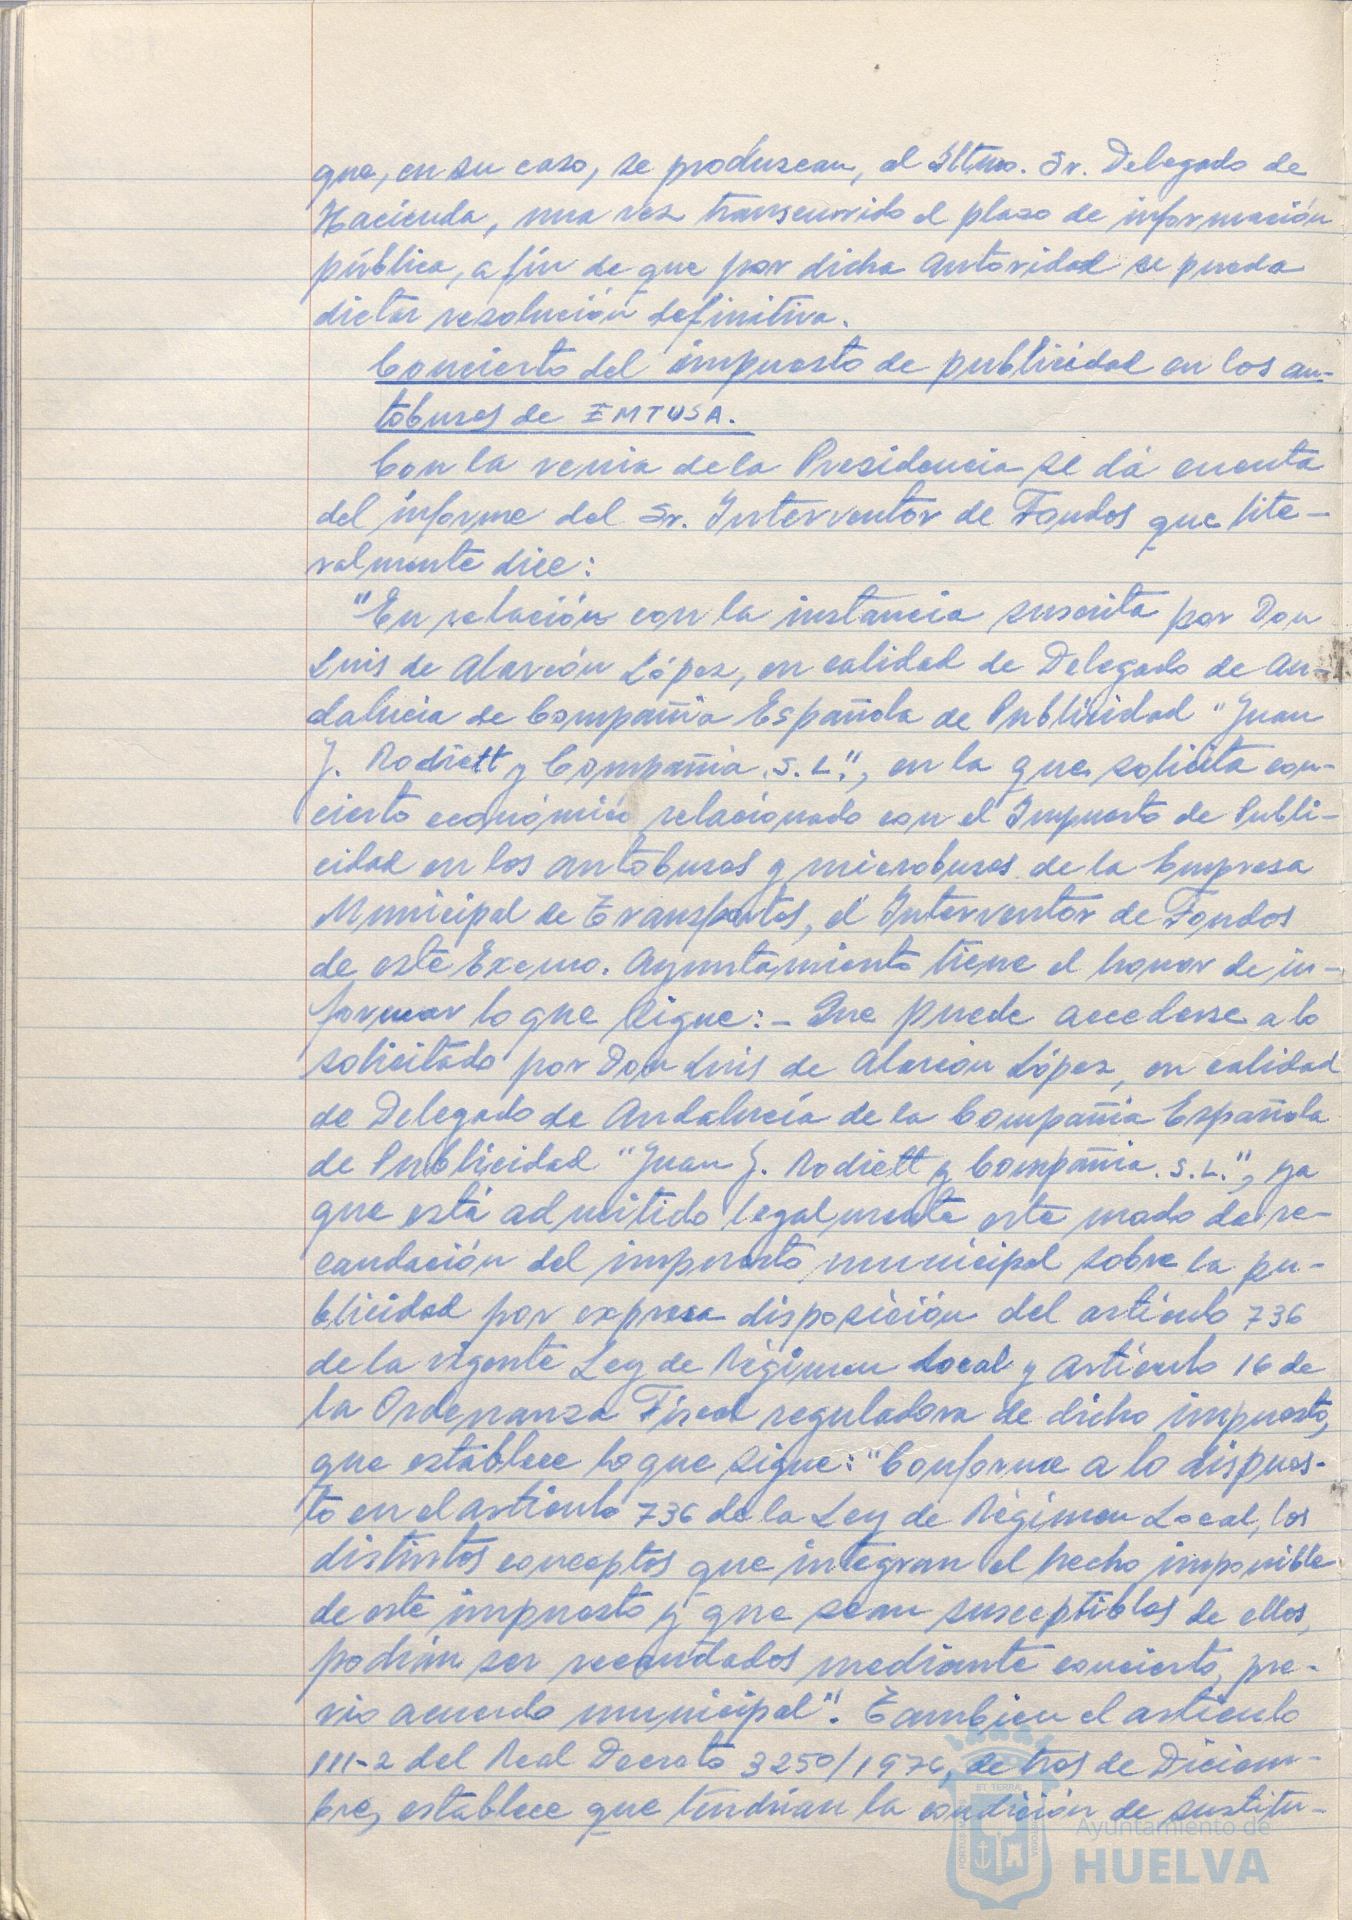 que, en su caso, se produzcan, al Iltmo. Sr. Delegado de
Hacienda, una vez transcurrido el plazo de información
pública, a fin de que por dicha Autoridad se pueda
dictar resolución definitiva.
Concierto del impuesto de publicidad en los au-
tobuses de EMTUSA.
Con la venia de la Presidencia se dá cuenta
del informe del Sr. Interventor de Fondos que lite-
ralmente dice:
"En relación con la instancia suscrita por Don
Luis de Alarcón López, en calidad de Delegado de An-
dalucia de Compañia Española de Publicidad "Juan
J. Rodiett y Compañia, S.L.", en la que solicita con-
cierto económico relacionado con el Impuesto de Publi-
cidad en los autobuses y microbuses de la Empresa
Municipal de Transportes, el Interventor de Fondos
de este Excmo. Ayuntamiento tiene el honor de in-
formar lo que sigue: - Que puede accederse a lo
solicitado por Don Luis de Alarcón López, en calidad
de Delegado de Andalucía de la Compañia Española
de Publicidad "Juan J. Rodiett y Compañia. S.L.", ya
que está admitido legalmente este modo de re-
caudación del impuesto municipal sobre la pu-
blicidad por expresa disposición del artículo 736
de la vigente Ley de Régimen Local y artículo 16 de
la Ordenanza Fiscal reguladora de dicho impuesto,
que establece lo que sigue: "Conforme a lo dispues-
to en el artículo 736 de la Ley de Régimen Local, los
distintos conceptos que integran el hecho imponible
de este impuesto y que sean susceptibles de ellos,
podrán ser recaudados mediante concierto, pre-
vio acuerdo municipal". Tambien el articulo
111-2 del Real Decreto 3250/1976, de tres de Diciem-
bre, establece que tendrían la condición de sustitu-
ET TERRAE
Ayuntamiento de
HUELVA